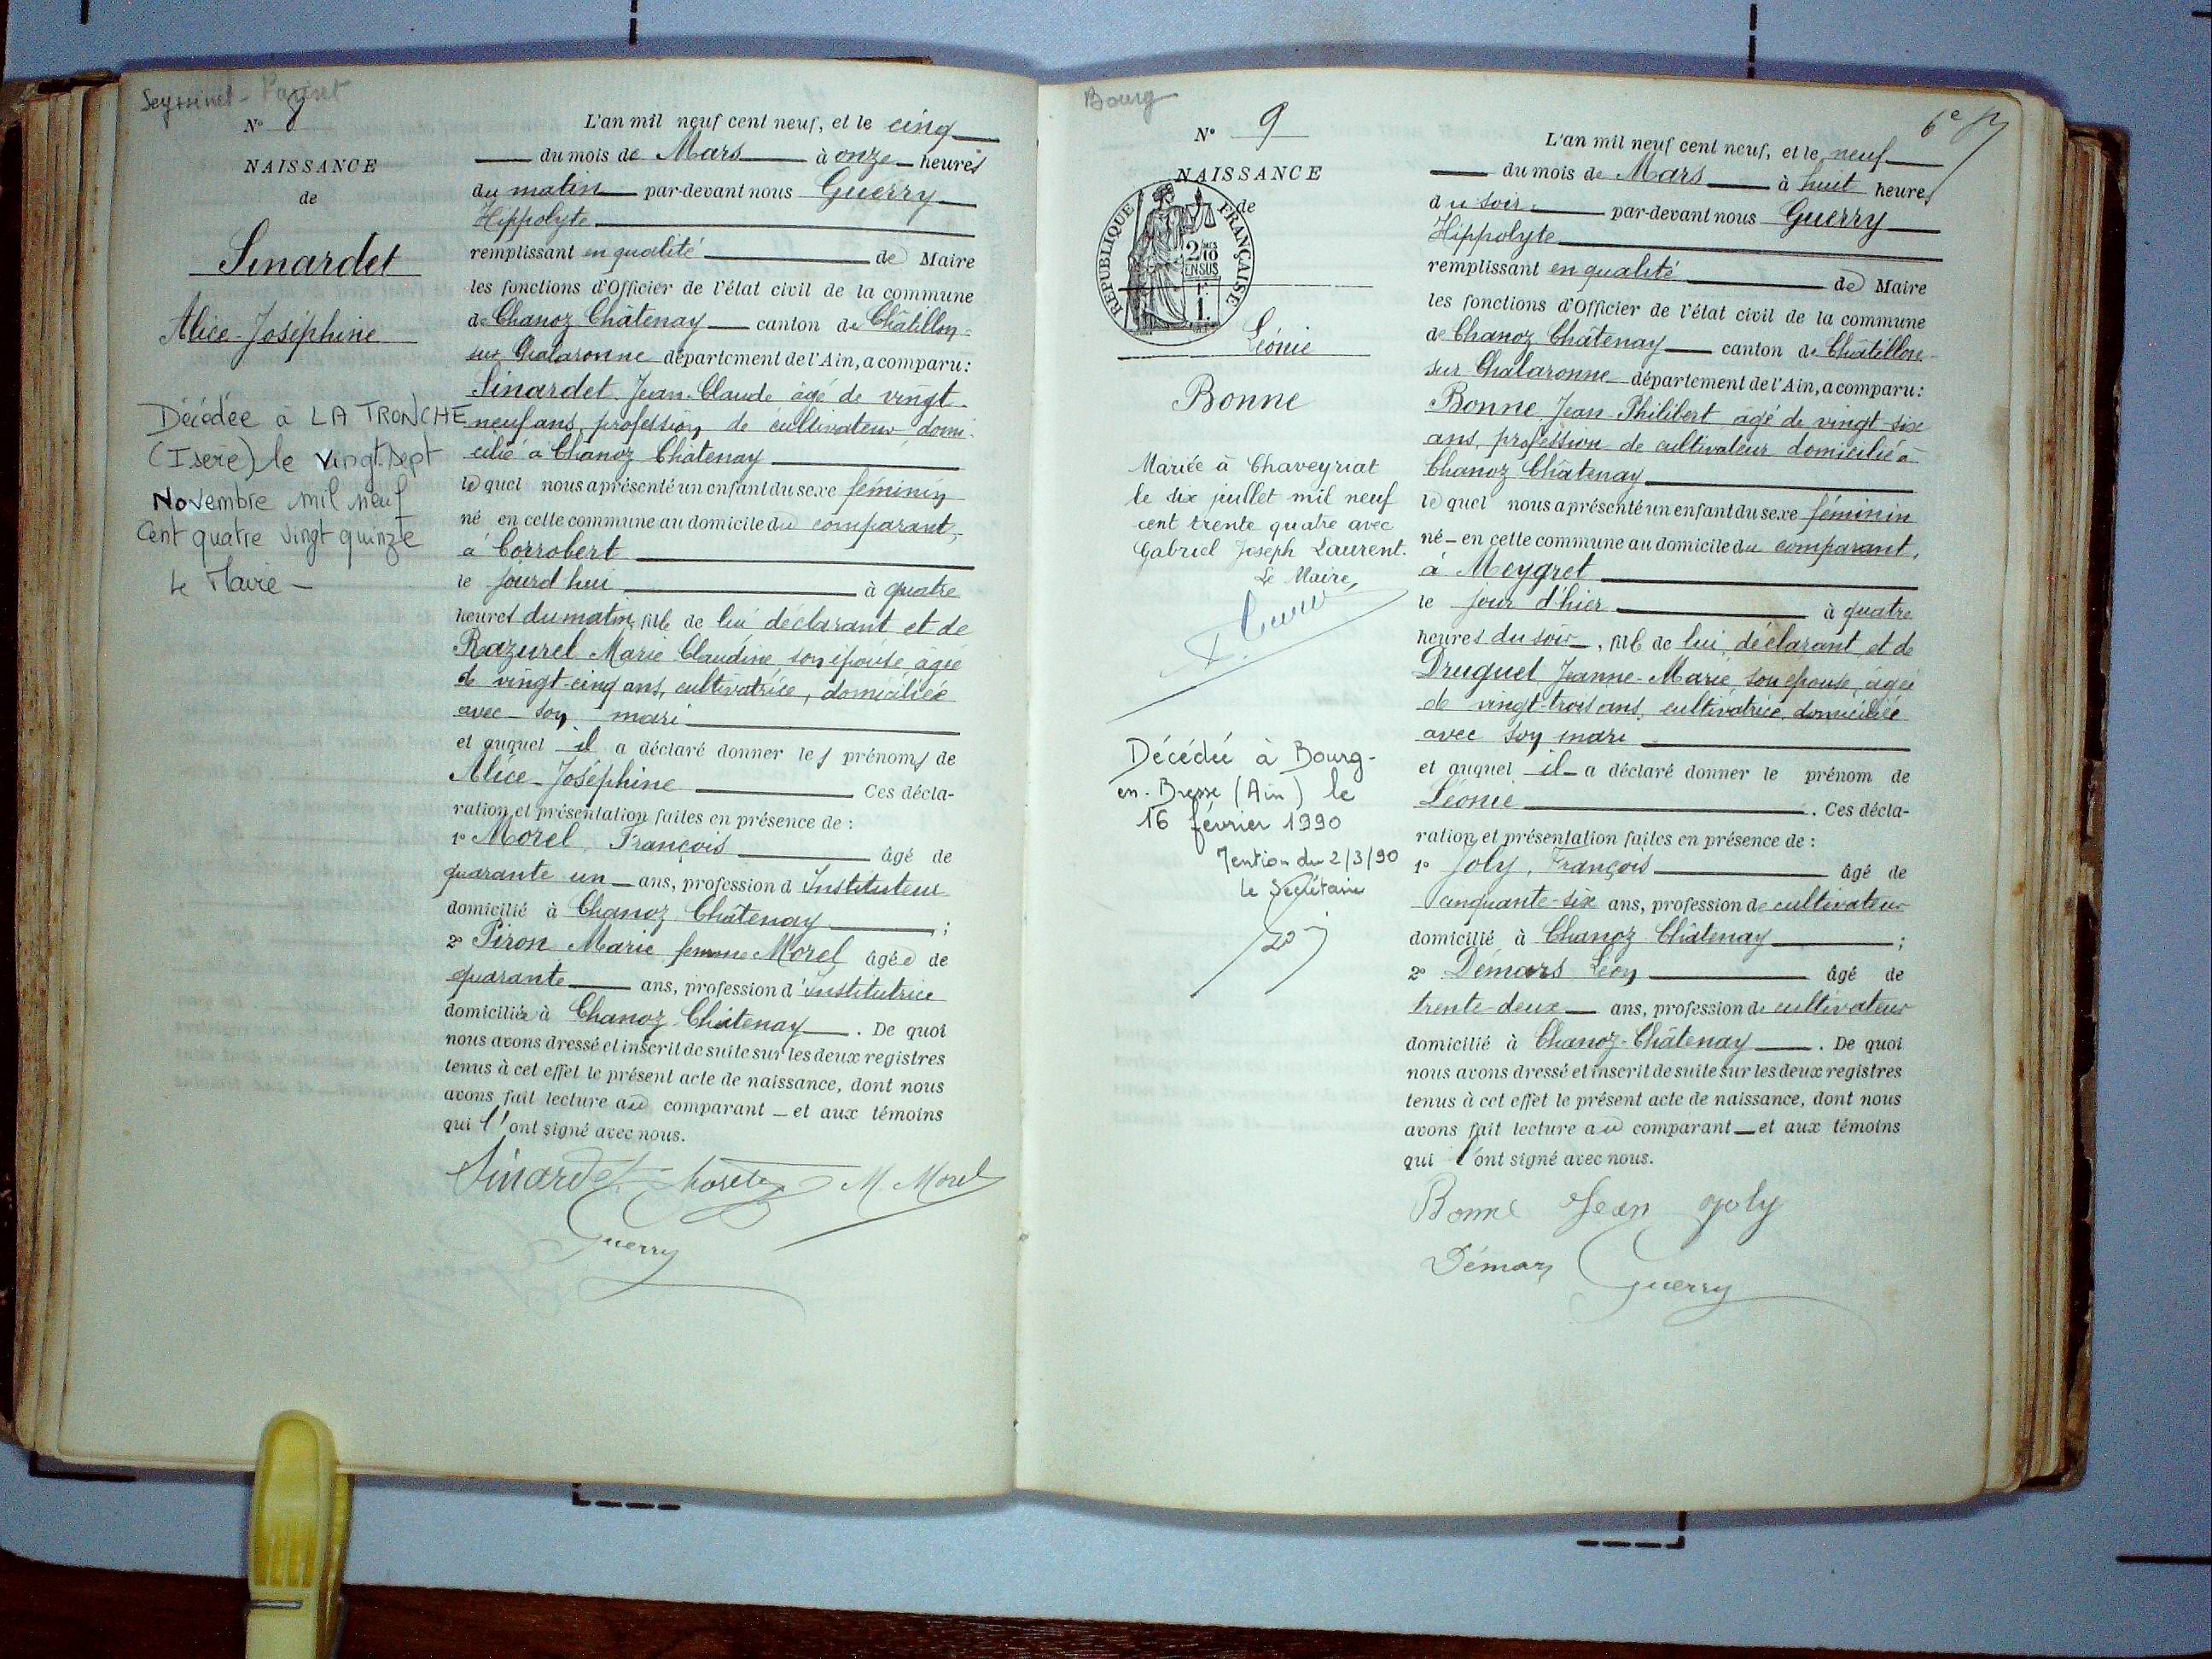 Seyssinet-Pariset
N° 8
NAISSANCE
de
Sinardet
Alice-Joséphine
Décédée à LA TRONCHE
(Isère) le vingt-sept
Novembre mil neuf
Cent quatre vingt quinze
Le Maire -
L'an mil neuf cent neuf, et le cinq
du mois de Mars à onze heures
du matin par-devant nous Guerry
Hippolyte
remplissant en qualité de Maire
les fonctions d'Officier de l'état civil de la commune
de Chanoz Châtenay canton de Châtillon-
sur Chalaronne département de l'Ain, a comparu :
Sinardet Jean-Claude âgé de vingt-
neuf ans, profession de cultivateur domi-
cilié à Chanoz Châtenay
lequel nous a présenté un enfant du sexe féminin
né en cette commune au domicile du comparant,
à Corrobert
le jourd'hui à quatre
heures du matin, fille de lui déclarant et de
Razurel Marie Claudine son épouse âgée
de vingt-cinq ans, cultivatrice, domiciliée
avec son mari
et auquel il a déclaré donner les prénoms de
Alice-Joséphine Ces décla-
ration et présentation faites en présence de :
1° Morel, François âgé de
quarante un ans, profession d'Instituteur
domicilié à Chanoz Châtenay ;
2° Piron Marie femme Morel âgée de
quarante ans, profession d'institutrice
domiciliée à Chanoz-Châtenay . De quoi
nous avons dressé et inscrit de suite sur les deux registres
tenus à cet effet le présent acte de naissance, dont nous
avons fait lecture au comparant et aux témoins
qui l'ont signé avec nous.
Sinardet Morel M. Morel
Guerry
Bourg
6e
N° 9
NAISSANCE
de
RÉPUBLIQUE FRANÇAISE
2/10 MES
EN SUS
1 F.
Léonie
Bonne
Mariée à Chaveyriat
le dix juillet mil neuf
cent trente quatre avec
Gabriel Joseph Laurent.
Le Maire,
Décédée à Bourg-
en-Bresse (Ain) le
16 février 1990
Mention du 2/3/90
Le Secrétaire
L'an mil neuf cent neuf, et le neuf
du mois de Mars à huit heures
du soir par-devant nous Guerry
Hippolyte
remplissant en qualité de Maire
les fonctions d'Officier de l'état civil de la commune
de Chanoz Châtenay canton de Châtillon-
sur Chalaronne département de l'Ain, a comparu :
Bonne Jean-Philibert âgé de vingt-six
ans, profession de cultivateur domicilié à
Chanoz Châtenay
lequel nous a présenté un enfant du sexe féminin
né en cette commune au domicile du comparant,
à Meygret
le jour d'hier à quatre
heures du soir, fille de lui, déclarant, et de
Druguet Jeanne-Marie son épouse, âgée
de vingt-trois ans, cultivatrice, domiciliée
avec son mari
et auquel il a déclaré donner le prénom de
Léonie . Ces décla-
ration et présentation faites en présence de :
1° Joly, François âgé de
cinquante-six ans, profession de cultivateur
domicilié à Chanoz Châtenay ;
2° Démars Léon âgé de
trente-deux ans, profession de cultivateur
domicilié à Chanoz-Châtenay . De quoi
nous avons dressé et inscrit de suite sur les deux registres
tenus à cet effet le présent acte de naissance, dont nous
avons fait lecture au comparant et aux témoins
qui l'ont signé avec nous.
Bonne Jean Joly
Démars Guerry